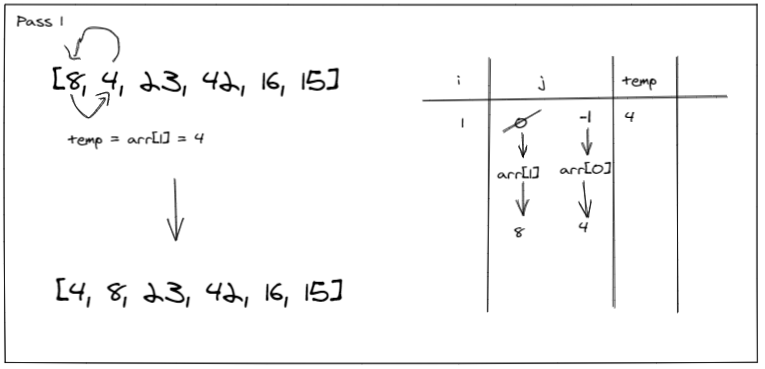 Pass 1
[8, 4, 23, 42, 16, 15]
temp = arr[1] = 4
[4, 8, 23, 42, 16, 15]
i j temp
1 0 -1 4
arr[1] arr[0]
8 4